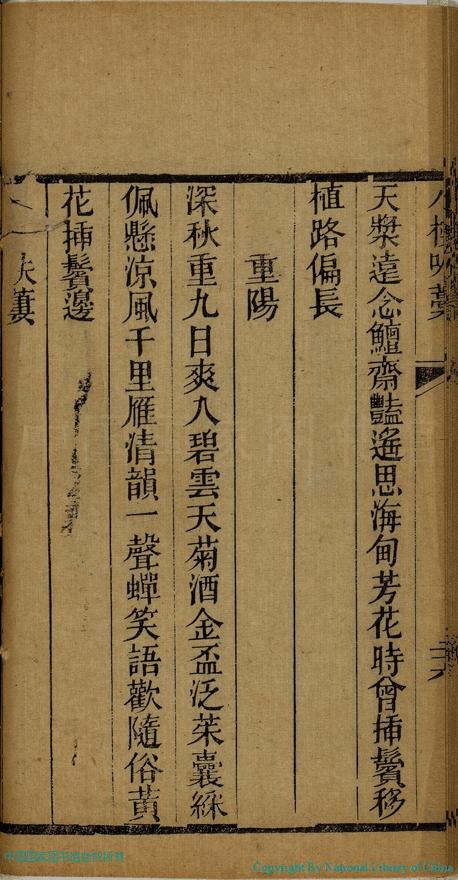 天槳遠念鱷齋豔遙思海甸芳花時曾插鬢移
植路偏長
重陽
深秋重九日爽入碧雲天菊酒金盃泛茱囊綵
佩懸涼風千里雁清韻一聲蟬笑語歡隨俗黃
花插鬢邊
Copyright By National Library of China